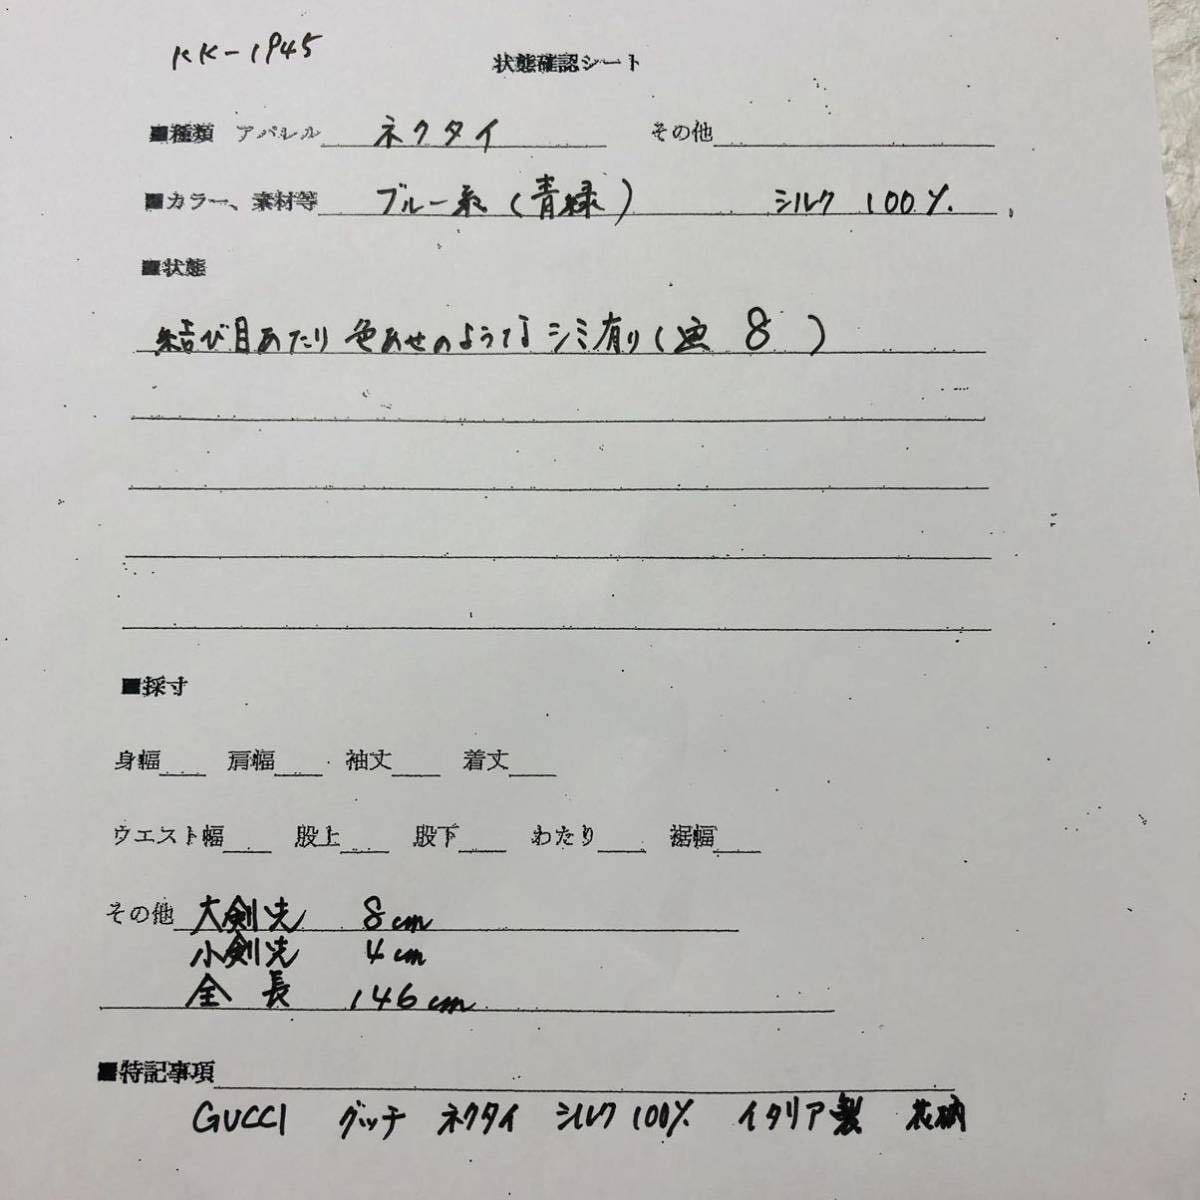 KK-1945
状態確認シート
■種類 アパレル ネクタイ その他
■カラー、素材等 ブルー系(青緑) シルク 100%
■状態
結び目あたり 色あせのような シミ有り( 8 )
■採寸
身幅 肩幅 袖丈 着丈
ウエスト幅 股上 股下 わたり 裾幅
その他 大剣先 8cm
小剣先 4cm
全長 146cm
■特記事項
GUCCI グッチ ネクタイ シルク100% イタリア製 花柄